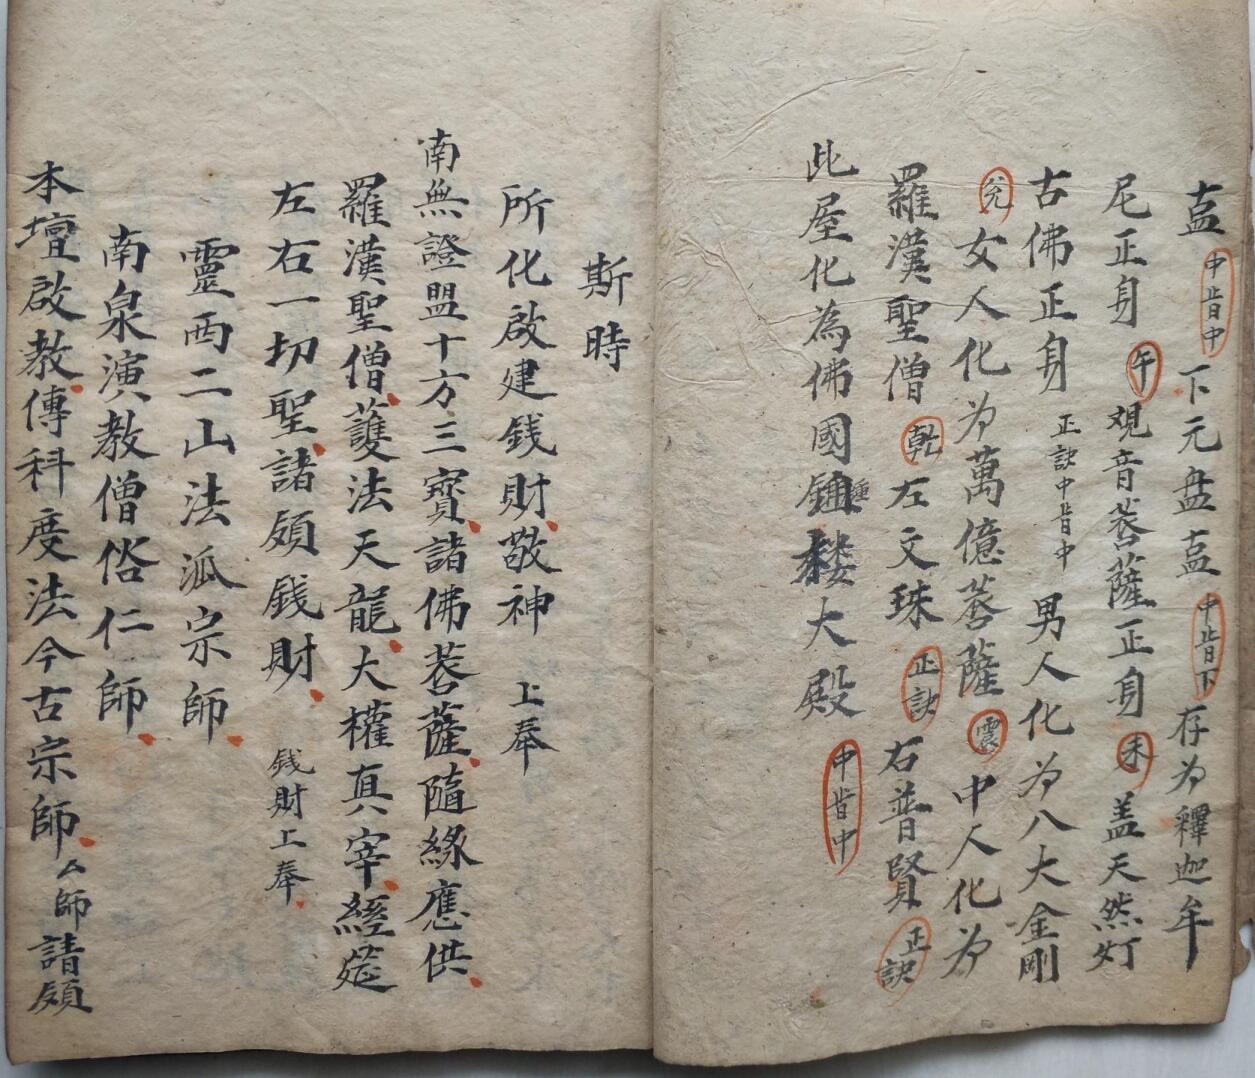 盍中指中下元盘盍中指下存为釋迦牟
尼正身午观音菩薩正身未盖天然灯
古佛正身正訣中指中男人化为八大金剛
兊女人化为萬億菩薩震中人化为
羅漢聖僧乾左文珠正訣右普賢正訣
此屋化為佛國鍾楼大殿中指中
斯時
所化啟建銭財敬神上奉
南無證盟十方三寶諸佛菩薩隨緣應供
羅漢聖僧護法天龍大權真宰經筵
左右一切聖諸領銭財銭財上奉
靈西二山法派宗師
南泉演教僧俗仁師
本壇啟教傳科度法今古宗師厶師請領